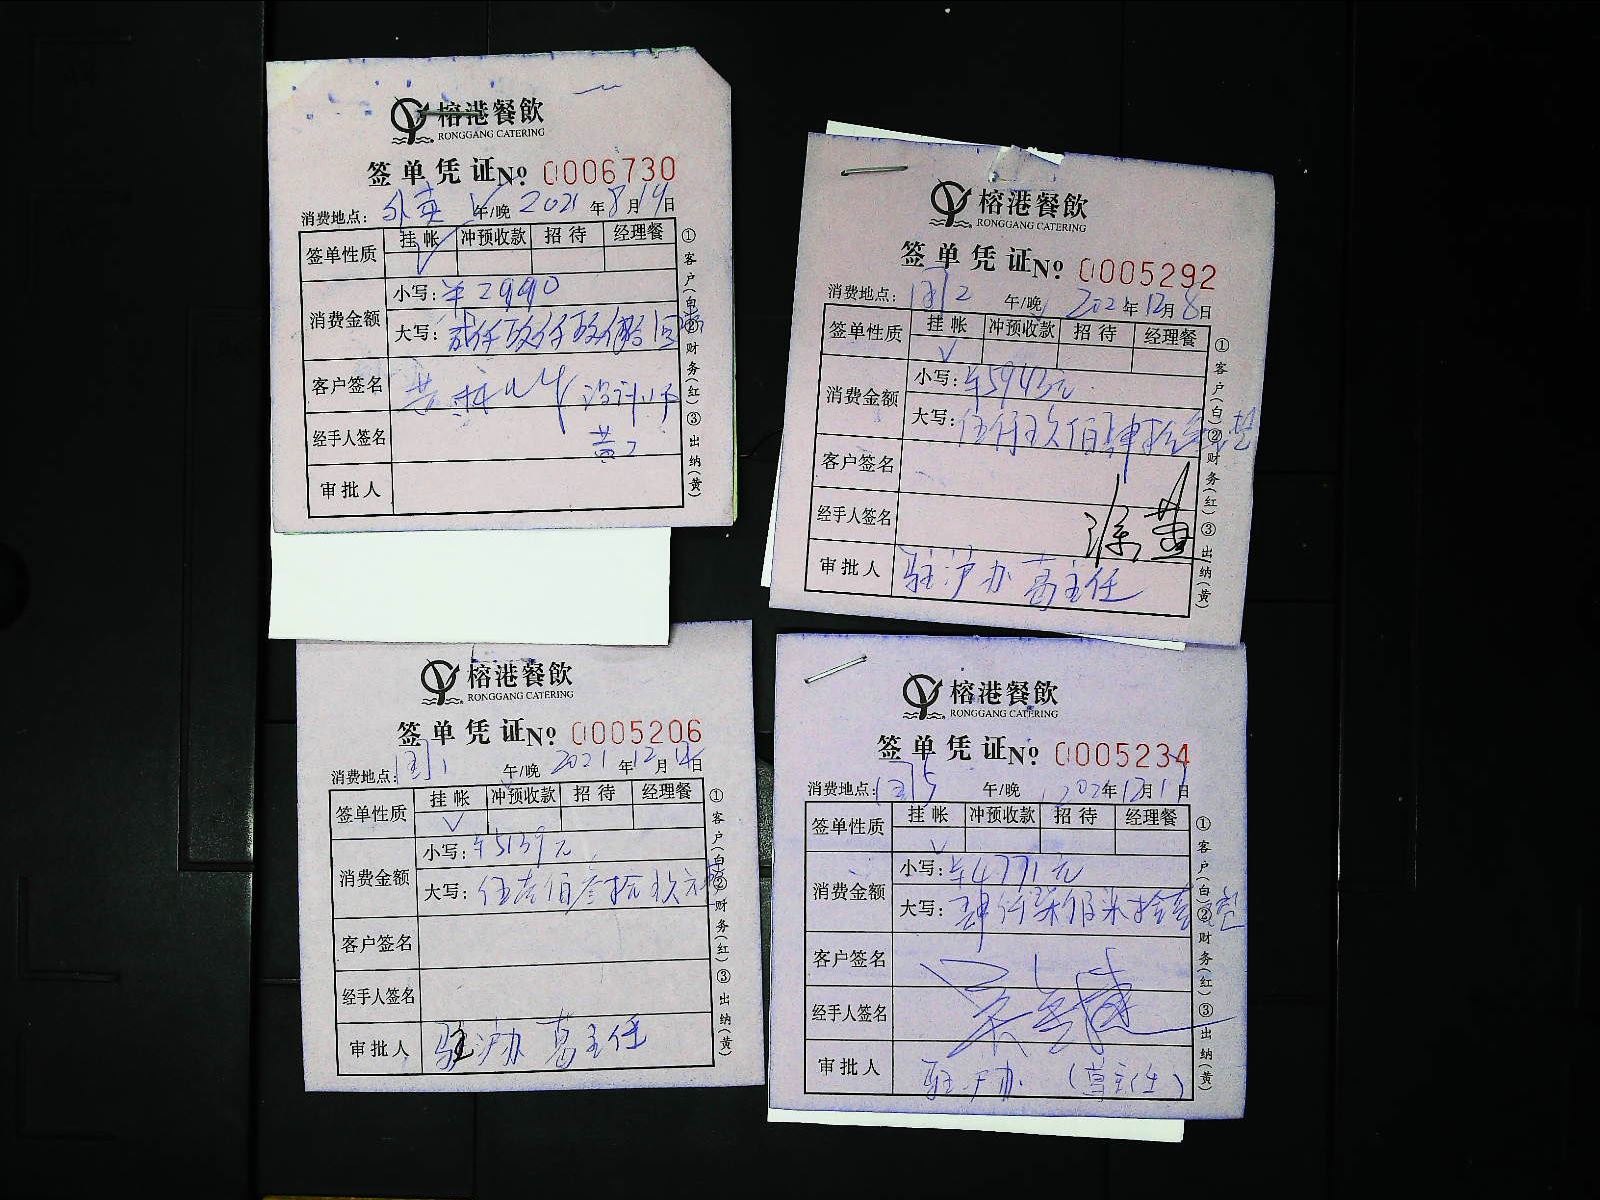 榕港餐飲
RONGGANG CATERING
签单凭证№ 0006730
消费地点: 外英 午/晚 2021年8月14日
签单性质 挂帐 冲预收款 招待 经理餐
消费金额 小写: ¥2990
大写: 贰仟玖仟玖佰拾
客户签名
经手人签名
审批人
①客户(白)②财务(红)③出纳(黄)
榕港餐飲
RONGGANG CATERING
签单凭证№ 0005292
消费地点: 国2 午/晚 202年12月8日
签单性质 挂帐 冲预收款 招待 经理餐
消费金额 小写: ¥5943元
大写: 伍仟玖佰肆拾叁元整
客户签名
经手人签名
审批人 驻沪办 葛主任
①客户(白)②财务(红)③出纳(黄)
榕港餐飲
RONGGANG CATERING
签单凭证№ 0005206
消费地点: 国1 午/晚 2021年12月14日
签单性质 挂帐 冲预收款 招待 经理餐
消费金额 小写: ¥5139元
大写: 伍壹佰叁拾玖元整
客户签名
经手人签名
审批人 驻沪办 葛主任
①客户(白)②财务(红)③出纳(黄)
榕港餐飲
RONGGANG CATERING
签单凭证№ 0005234
消费地点: 国5 午/晚 202年12月1日
签单性质 挂帐 冲预收款 招待 经理餐
消费金额 小写: ¥4771元
大写: 肆仟柒佰柒拾壹元整
客户签名
经手人签名
审批人 驻沪办 (葛主任)
①客户(白)②财务(红)③出纳(黄)